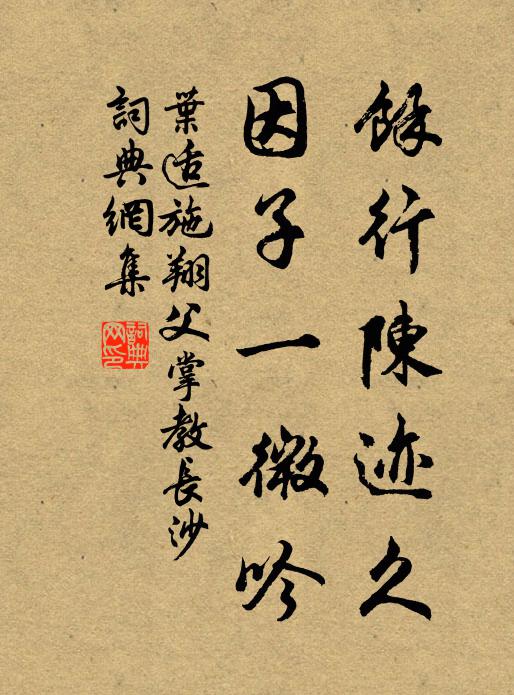 餘行陳迹久
因子一微吟
葉适施翔父掌教長沙
詞典網集
詞典網印